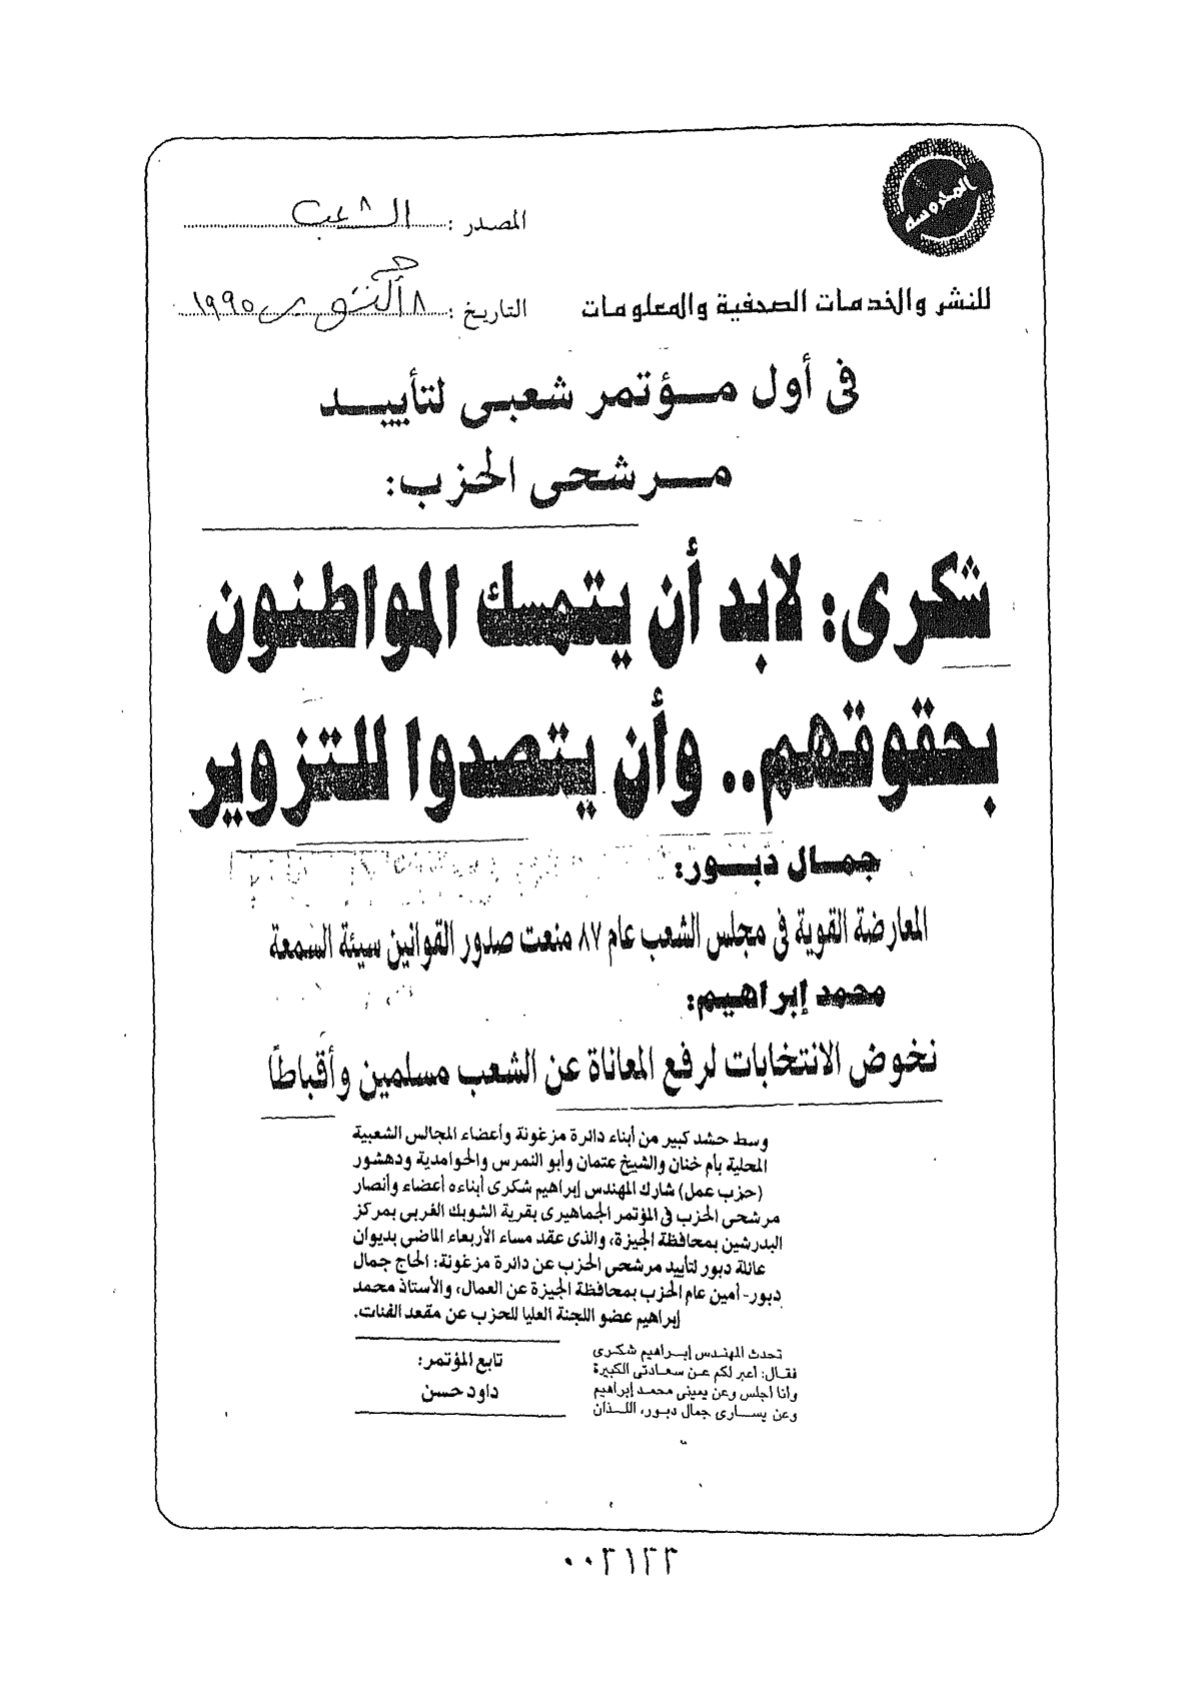 المحروسة
المصدر: الشعب
للنشر والخدمات الصحفية والمعلومات
التاريخ: ١٨ أكتوبر ١٩٩٥
فى أول مؤتمر شعبى لتأييد
مرشحى الحزب:
شكرى: لابد أن يتمسك المواطنون
بحقوقهم.. وأن يتصدوا للتزوير
جمال دبور:
المعارضة القوية فى مجلس الشعب عام ٨٧ منعت صدور القوانين سيئة السمعة
محمد إبراهيم:
نخوض الانتخابات لرفع المعاناة عن الشعب مسلمين وأقباطًا
وسط حشد كبير من أبناء دائرة مزغونة وأعضاء المجالس الشعبية
المحلية بأم خنان والشيخ عتمان وأبو النمرس والحوامدية ودهشور
(حزب عمل) شارك المهندس إبراهيم شكرى أبناءه أعضاء وأنصار
مرشحى الحزب فى المؤتمر الجماهيرى بقرية الشوبك الغربى بمركز
البدرشين بمحافظة الجيزة، والذى عقد مساء الأربعاء الماضى بديوان
عائلة دبور لتأييد مرشحى الحزب عن دائرة مزغونة: الحاج جمال
دبور- أمين عام الحزب بمحافظة الجيزة عن العمال، والأستاذ محمد
إبراهيم عضو اللجنة العليا للحزب عن مقعد الفئات.
تحدث المهندس إبراهيم شكرى
فقال: أعبر لكم عن سعادتى الكبيرة
وأنا أجلس وعن يمينى محمد إبراهيم
وعن يسارى جمال دبور، اللذان
تابع المؤتمر:
داود حسن
٠٠٢١٢٢